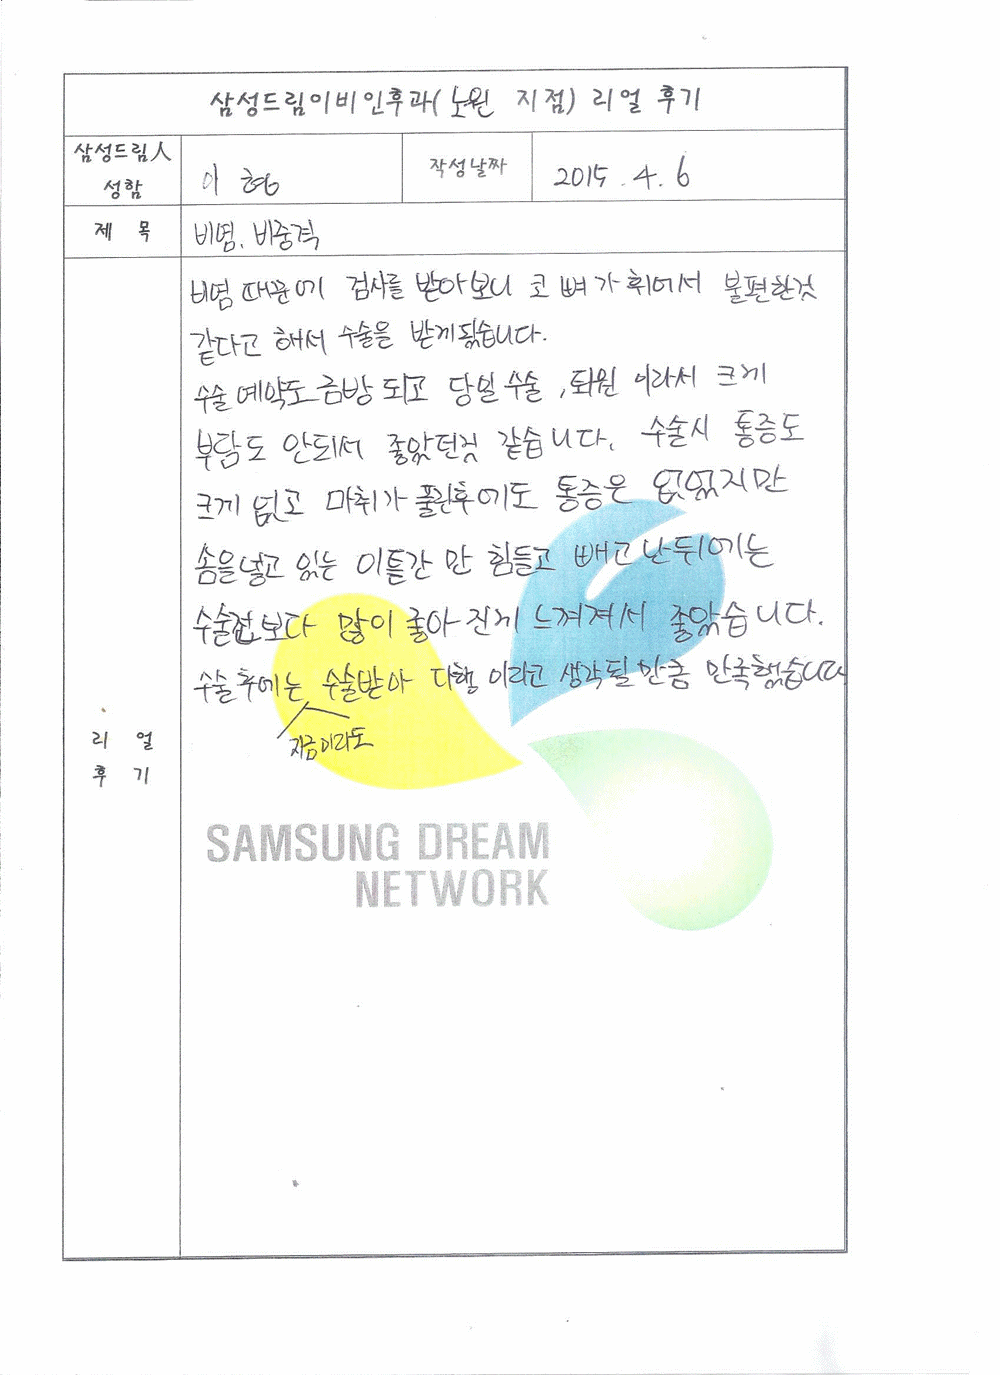 삼성드림이비인후과( 노원 지점) 리얼 후기
삼성드림人 성함
이 형
작성날짜
2015. 4. 6
제 목
비염, 비중격
리 얼 후 기
비염 때문에 검사를 받아보니 코 뼈가 휘에서 불편한것
같다고 해서 수술을 받게됬습니다.
수술 예약도 금방 되고 당일 수술, 퇴원 이라서 크게
부담도 안되서 좋았던것 같습니다. 수술시 통증도
크게 없고 마취가 풀린후에도 통증은 없었지만
솜을넣고 있는 이틀간 만 힘들고 빼고 난뒤에는
수술전보다 많이 좋아 진게 느껴져서 좋았습니다.
수술후에는 지금이라도 수술받아 다행 이라고 생각될 만큼 만족했습니다
SAMSUNG DREAM
NETWORK